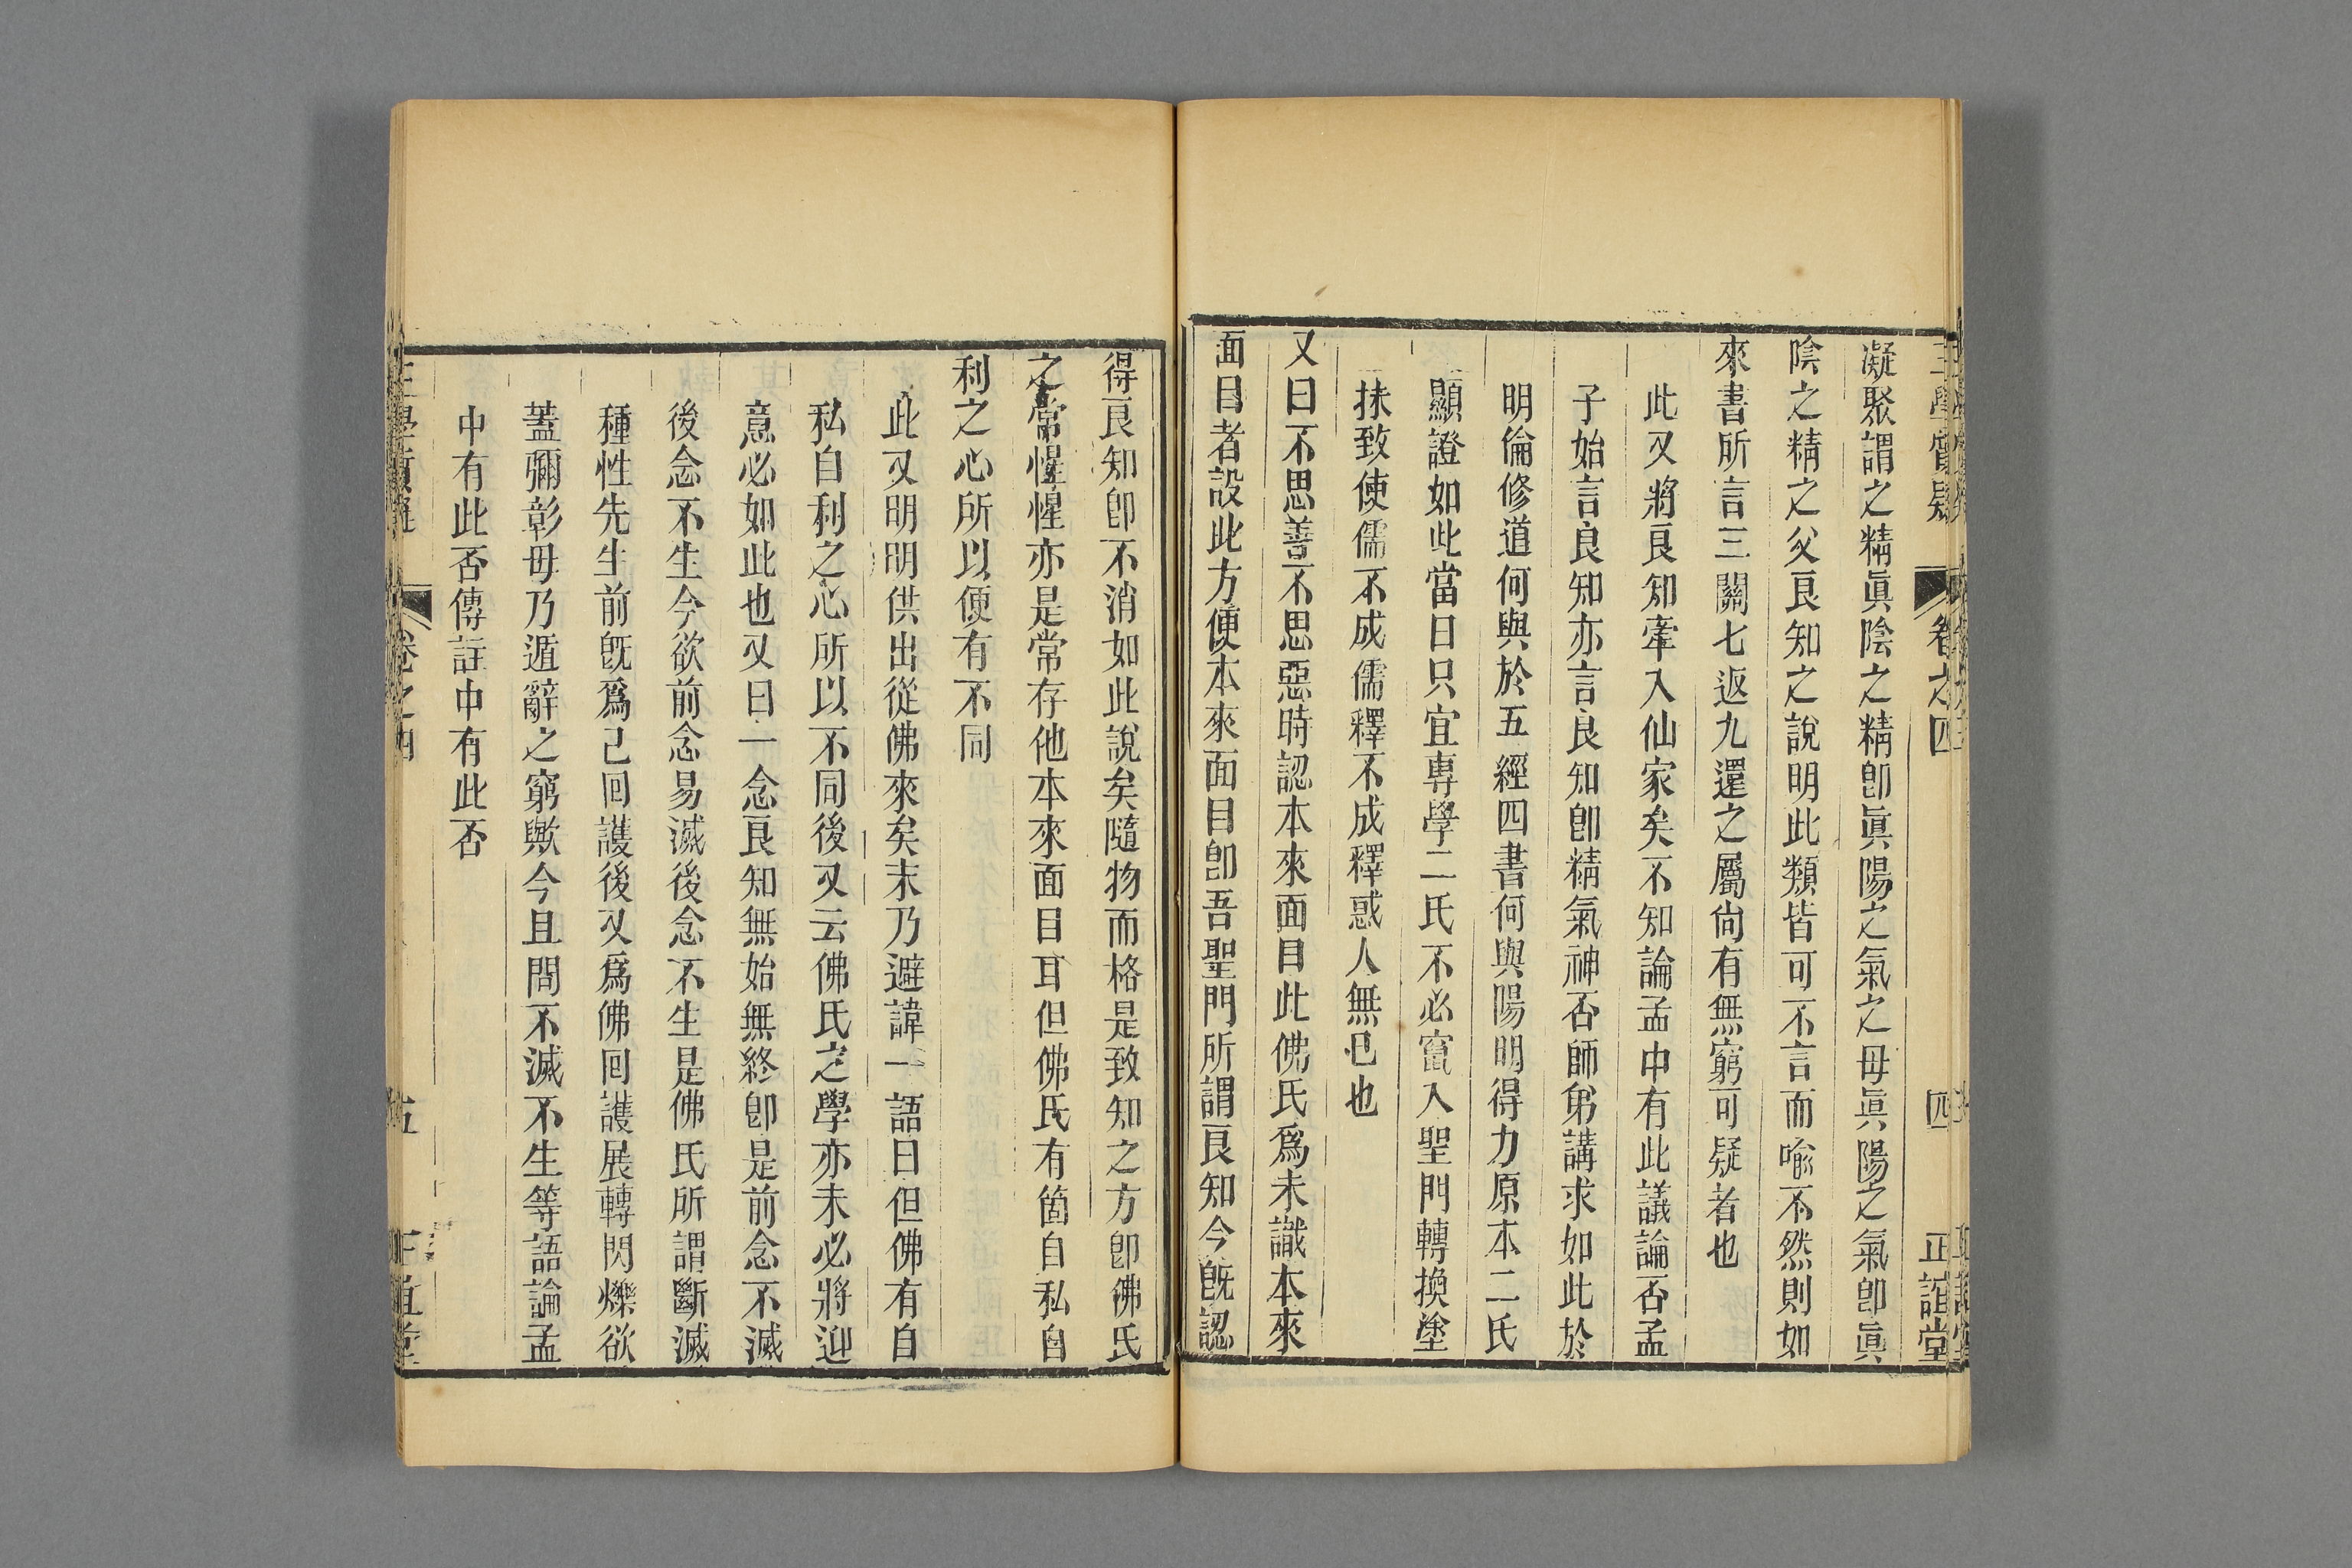 王學質疑 卷之四 四 正誼堂
凝聚謂之精眞陰之精卽眞陽之氣之母眞陽之氣卽眞
陰之精之父良知之說明此類皆可不言而喻不然則如
來書所言三關七返九還之屬尙有無窮可疑者也
此又將良知牽入仙家矣不知論孟中有此議論否孟
子始言良知亦言良知卽精氣神否師弟講求如此於
明倫修道何與於五經四書何與陽明得力原本二氏
顯證如此當日只宜專學二氏不必竄入聖門轉換塗
抹致使儒不成儒釋不成釋惑人無已也
又曰不思善不思惡時認本來面目此佛氏爲未識本來
面目者設此方便本來面目卽吾聖門所謂良知今旣認
得良知卽不消如此說矣隨物而格是致知之方卽佛氏
之常惺惺亦是常存他本來面目耳但佛氏有箇自私自
利之心所以便有不同
此又明明供出從佛來矣末乃避諱一語曰但佛有自
私自利之心所以不同後又云佛氏之學亦未必將迎
意必如此也又曰一念良知無始無終卽是前念不滅
後念不生今欲前念易滅後念不生是佛氏所謂斷滅
種性先生前旣爲己回護後又爲佛回護展轉閃爍欲
蓋彌彰毋乃遁辭之窮歟今且問不滅不生等語論孟
中有此否傳註中有此否
王學質疑 卷之四 五 正誼堂